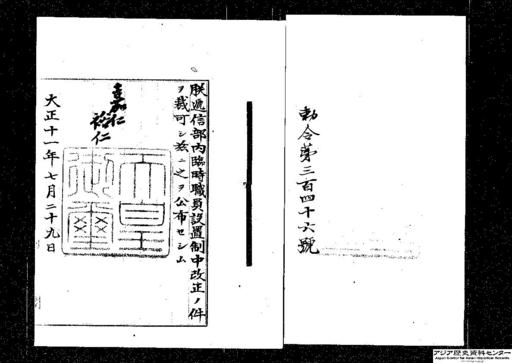 勅令第三百四十六號
朕逓信部內臨時職員設置制中改正ノ件
ヲ裁可シ玆ニ之ヲ公布セシム
嘉仁
裕仁
天皇
御璽
大正十一年七月二十九日
アジア歴史資料センター
Japan Center for Asian Historical Records